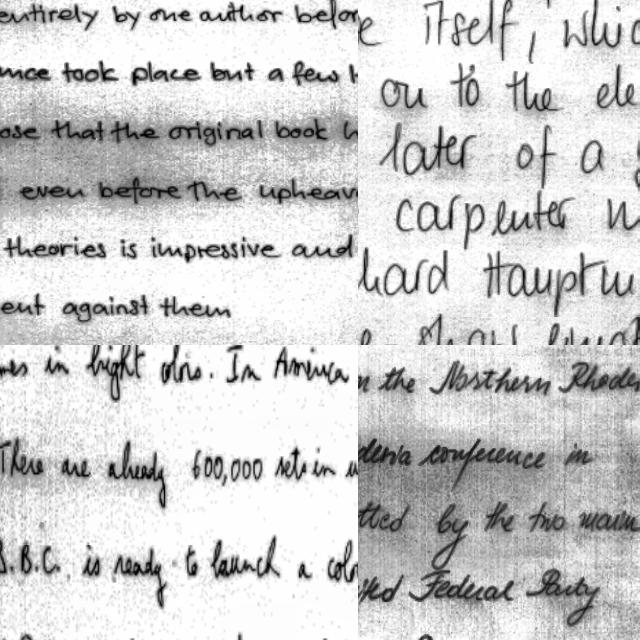 entirely by one author before
took place but a few
that the original book
even before the upheav
theories is impressive and
ent against them
itself, whic
on to the ele
later of a
carpenter
hard Hauptm
in bright colours. In America
There are already 600,000 sets in
B.B.C. is ready to launch a colo
the Northern Rhodes
conference in
by the two main
Federal Party